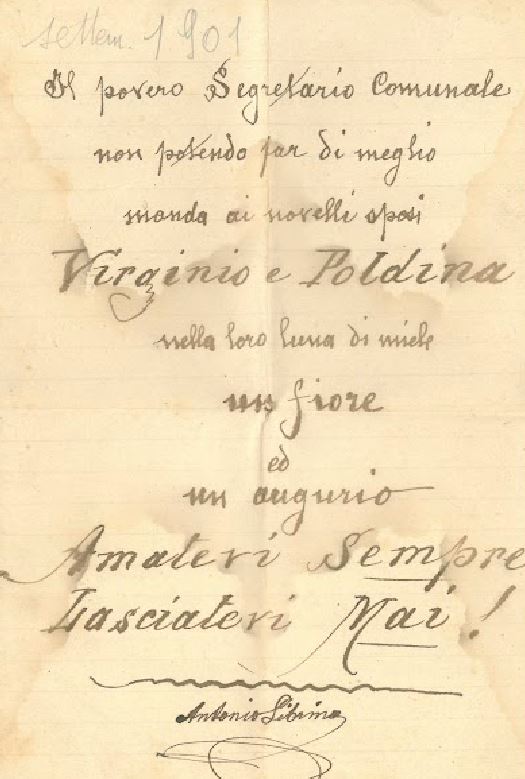 settem. 1901
Il povero Segretario Comunale
non potendo far di meglio
manda ai novelli sposi
Virginio e Poldina
nella loro luna di miele
un fiore
ed
un augurio
Amatevi Sempre
Lasciatevi Mai!
Antonio